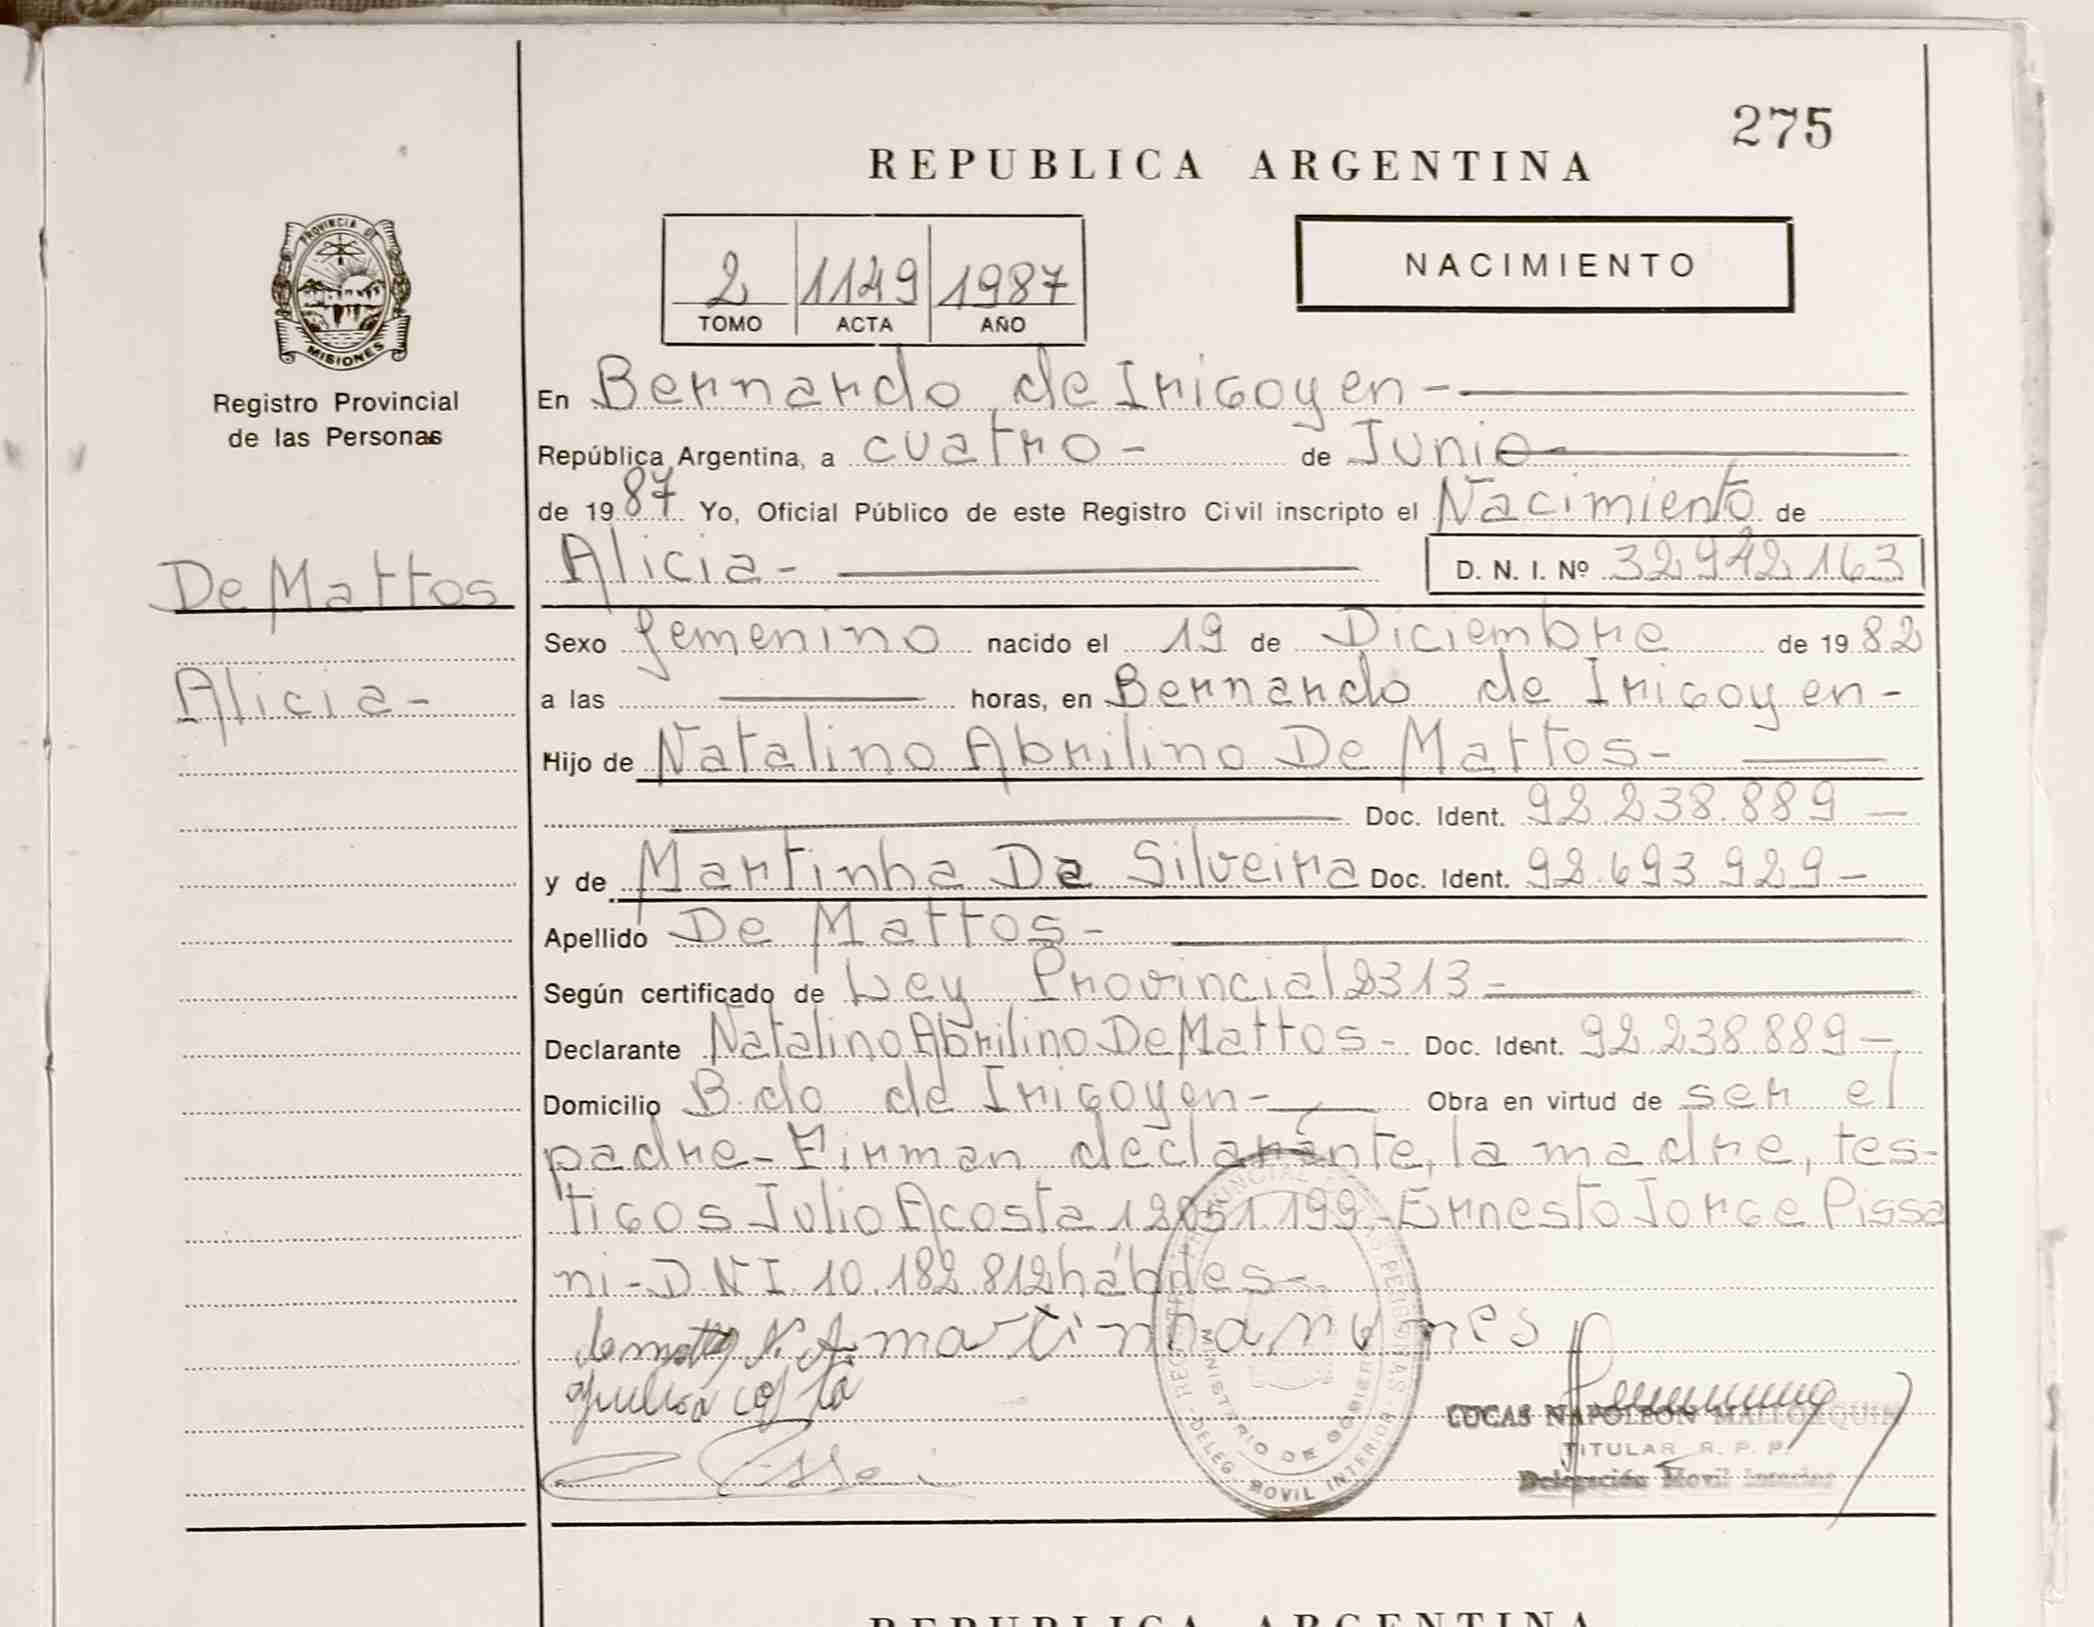 275
REPUBLICA ARGENTINA
PROVINCIA DE
MISIONES
Registro Provincial
de las Personas
2 1149 1987
TOMO ACTA AÑO
NACIMIENTO
En Bernardo de Irigoyen -
República Argentina, a cuatro - de Junio
de 1987 Yo, Oficial Público de este Registro Civil inscripto el Nacimiento de
De Mattos
Alicia -
Alicia -
D. N. I. Nº 32942163
Sexo femenino nacido el 19 de Diciembre de 1982
a las horas, en Bernardo de Irigoyen -
Hijo de Natalino Abrilino De Mattos -
Doc. Ident. 92.238.889 -
y de Martinha Da Silveira Doc. Ident. 92.693.929 -
Apellido De Mattos -
Según certificado de Ley Provincial 2313 -
Declarante Natalino Abrilino De Mattos - Doc. Ident. 92.238.889 -
Domicilio B.do de Irigoyen - Obra en virtud de ser el
padre - Firman declarante, la madre, tes-
tigos Julio Acosta 12051.199 - Ernesto Jorge Pissa
ni - D.N.I. 10.182.812 hábdes -
martinha nunes
LUCAS NAPOLEON MALLORQUIN
TITULAR R. P. P.
Delegación Movil Interior
MINISTERIO DE GOBIERNO
DELEG. MOVIL INTERIOR
REPUBLICA ARGENTINA